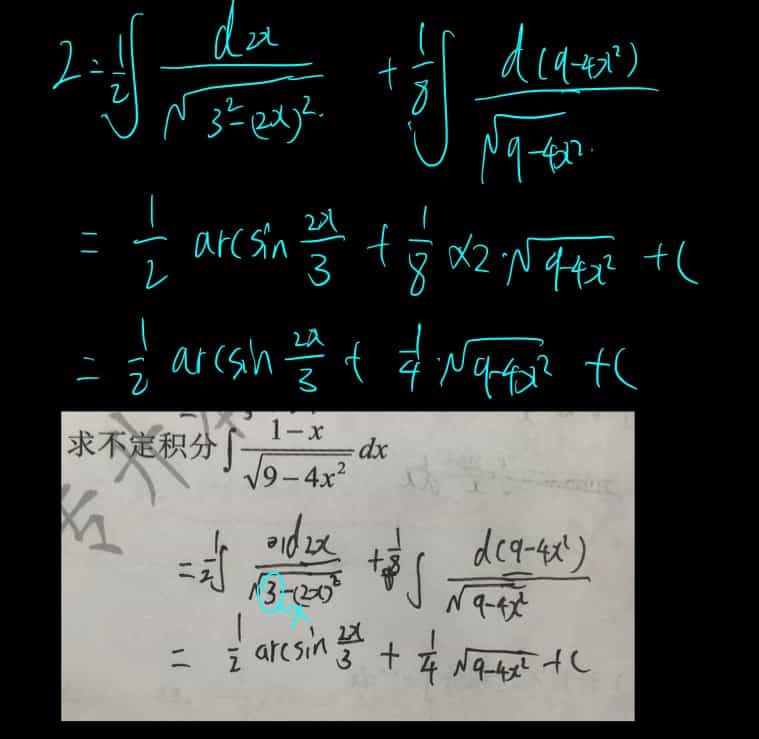 2 = \frac{1}{2} ∫ \frac{d2x}{\sqrt{3^2-(2x)^2}} + \frac{1}{8} ∫ \frac{d(9-4x^2)}{\sqrt{9-4x^2}}
= \frac{1}{2} arcsin \frac{2x}{3} + \frac{1}{8} × 2 · \sqrt{9-4x^2} + C
= \frac{1}{2} arcsin \frac{2x}{3} + \frac{1}{4} · \sqrt{9-4x^2} + C
求不定积分 ∫ \frac{1-x}{\sqrt{9-4x^2}} dx
= \frac{1}{2} ∫ \frac{d2x}{\sqrt{3-(2x)^2}} + \frac{1}{8} ∫ \frac{d(9-4x^2)}{\sqrt{9-4x^2}}
= \frac{1}{2} arcsin \frac{2x}{3} + \frac{1}{4} \sqrt{9-4x^2} + C